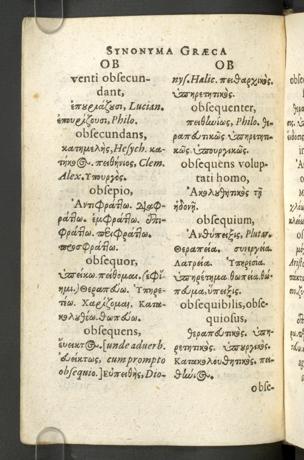 SYNONYMA GRÆCA
OB
venti obsecun-
dant,
ἐπουριάζουσι, Lucian.
ἐπουρίζουσι, Philo.
obsecundans,
κατημελὴς, Hesych. κα-
τήκοος. πειθήνιος, Clem.
Alex. Ὑπουργός.
obsepio,
Ἀντιφράττω. Διαφ-
ράττω. ἐμφράττω. ἐπι-
φράττω. περιφράττω.
προσφράττω.
obsequor,
ὑπείκω. πείθομαι. (ἐφί-
ημι.) Θεραπεύω. Ὑπηρε-
τέω. Χαρίζομαι. Κατα-
κολουθέω. θωπεύω.
obsequens,
εὔεικτος. [unde adverb.
εὐείκτως, cum prompto
obsequio.] Εὐπειθὴς, Dio-
OB
nys. Halic. πειθαρχικός.
ὑπηρετητικός.
obsequenter,
πειθωίως, Philo. θε-
ραπευτικῶς. ὑπηρετητι-
κῶς. ὑπουργικῶς.
obsequens volup-
tati homo,
Ἀκολουθητικὸς τῇ
ἡδονῇ.
obsequium,
Ἀνθύπειξις, Plutar.
Θεραπεία. συνεργεία.
Λατρεία. Ὑπηρεσία.
ὑπηρέτημα. θωπεία. θώ-
πευμα. ὕπειξις.
obsequibilis, obse-
quiosus,
θεραπευτικός. ὑπη-
ρετητικός. ὑπουργικός.
Κατακολουθητικός. πει-
obse-